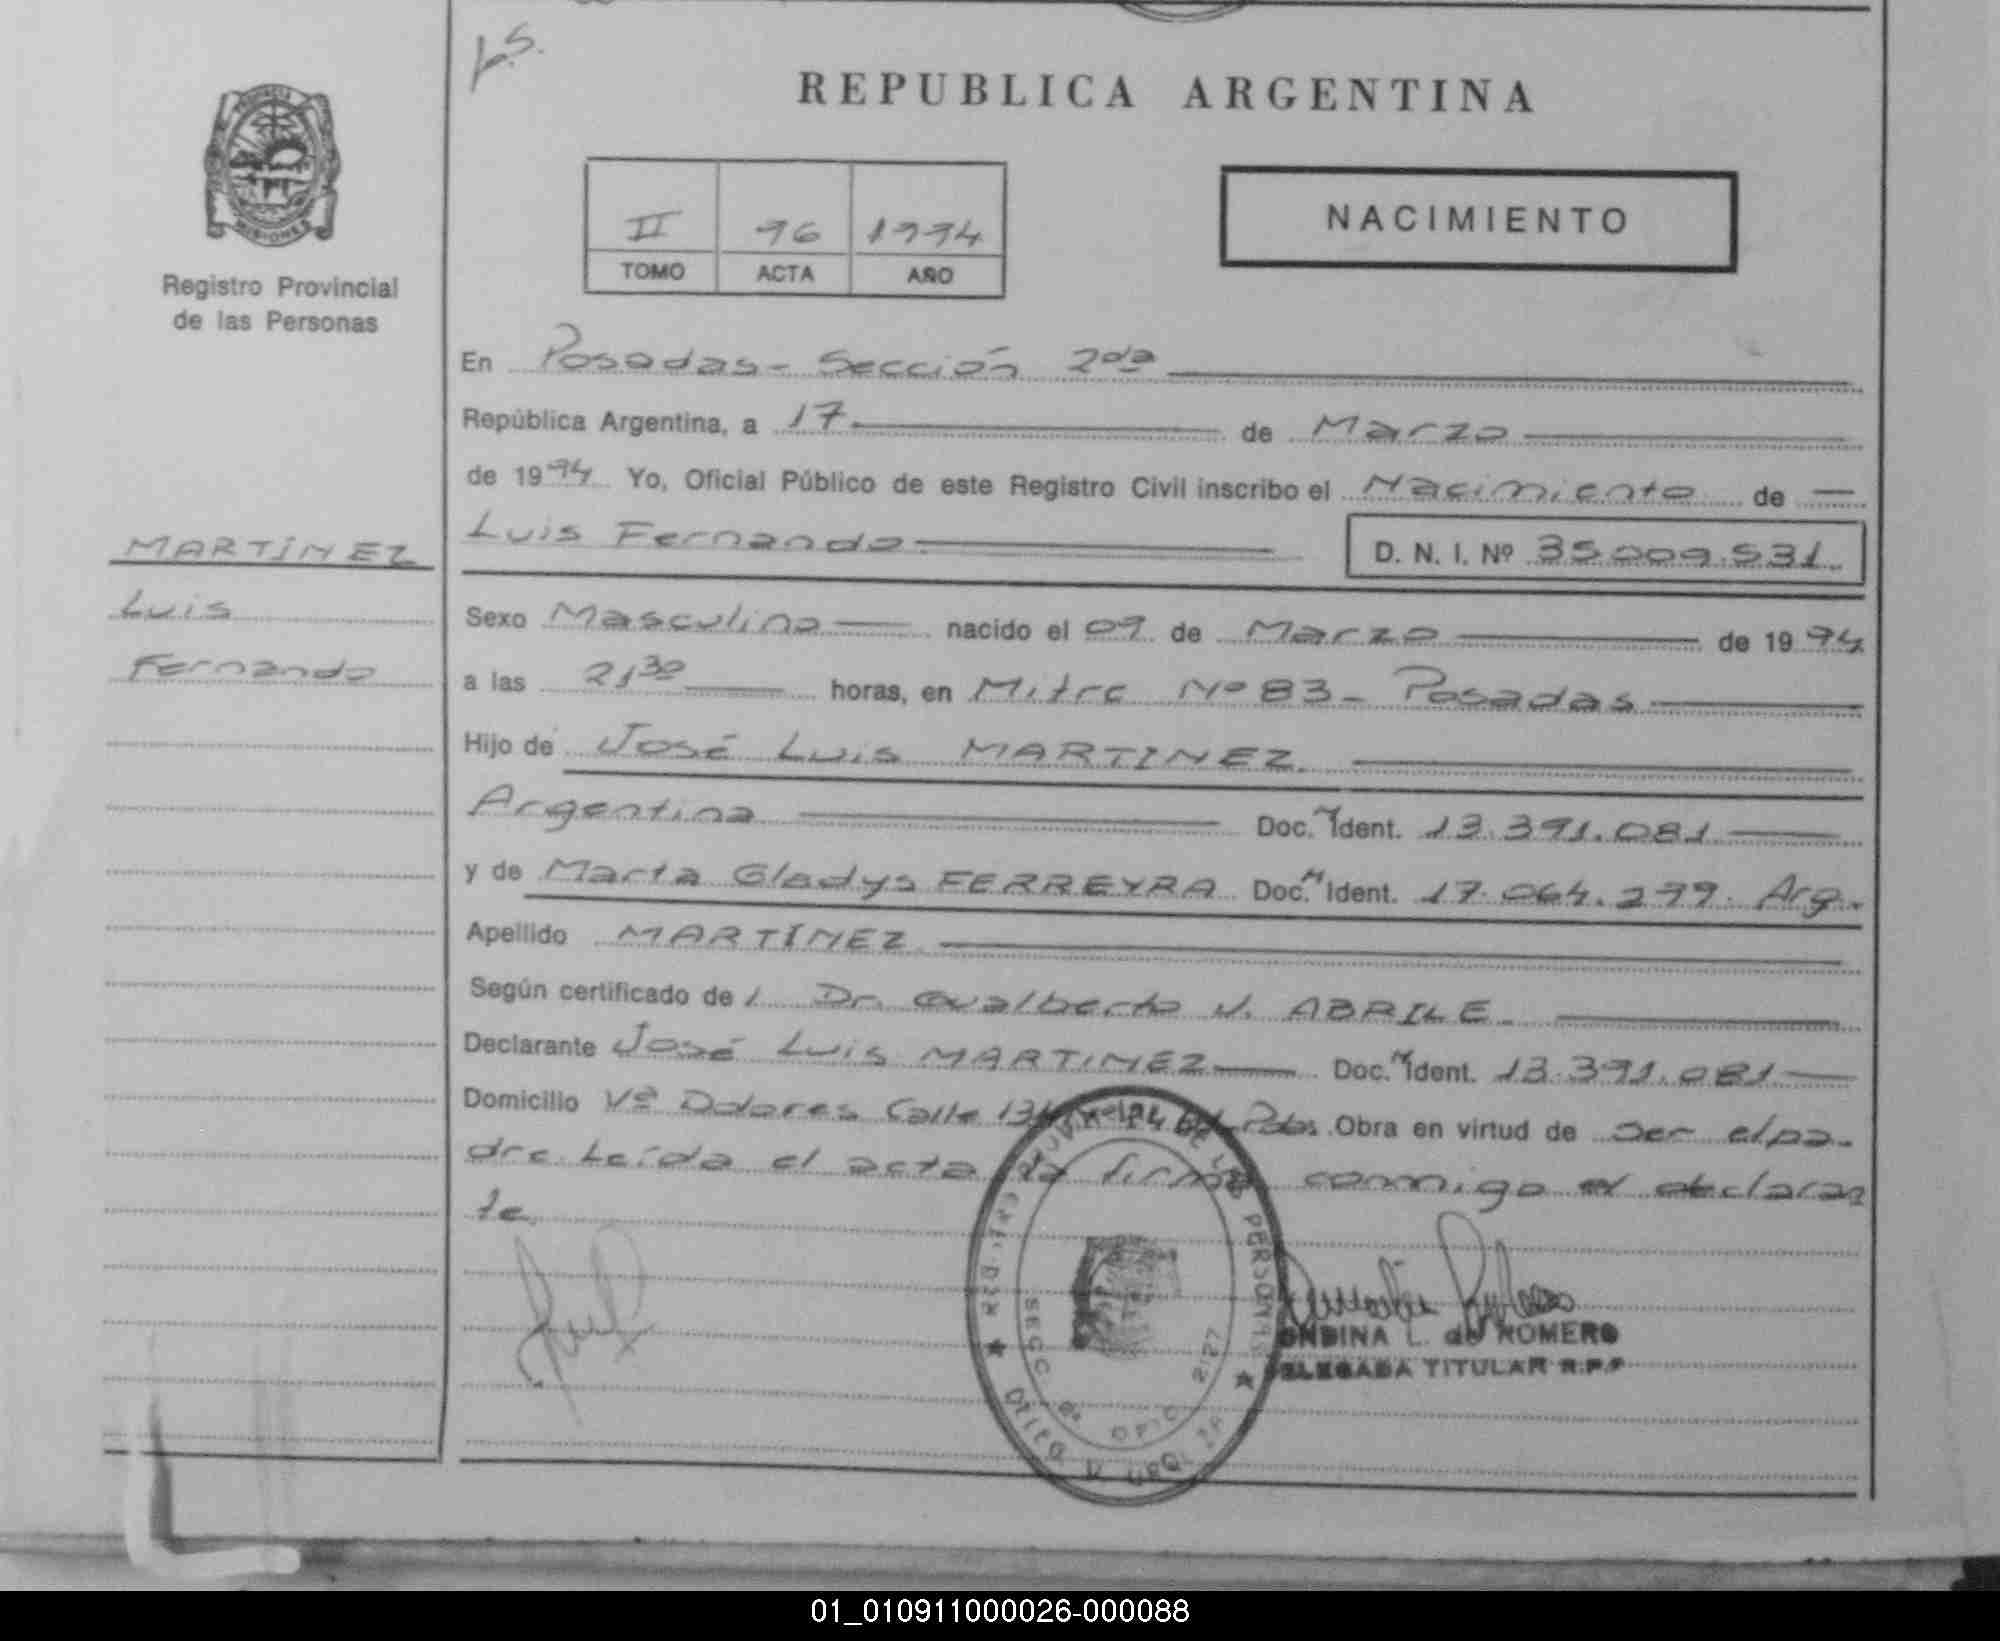 L.S.
REPUBLICA ARGENTINA
PROVINCIA
MISIONES
Registro Provincial
de las Personas
II 96 1994
TOMO ACTA AÑO
NACIMIENTO
En Posadas - Sección 2da
República Argentina, a 17 de Marzo
de 1994 Yo, Oficial Público de este Registro Civil inscribo el Nacimiento de
Luis Fernando D. N. I. Nº 35009.531.
MARTINEZ
Luis
Fernando
Sexo Masculino nacido el 09 de Marzo de 1994
a las 21 30 horas, en Mitre Nº 83 - Posadas
Hijo de José Luis MARTINEZ.
Argentina Doc. M Ident. 13.391.081
y de Marta Gladys FERREYRA Doc. M Ident. 17.064.299. Arg.
Apellido MARTÍNEZ
Según certificado de l Dr. Gualberto J. ABRILE
Declarante José Luis MARTINEZ Doc. M Ident. 13.391.081
Domicilio Vª Dolores Calle Pdas. Obra en virtud de ser el pa-
dre. Leída el acta la firma conmigo el declaran
te.
ONDINA L. de ROMERO
DELEGADA TITULAR R.P.P
SECC 2ª
01_010911000026-000088